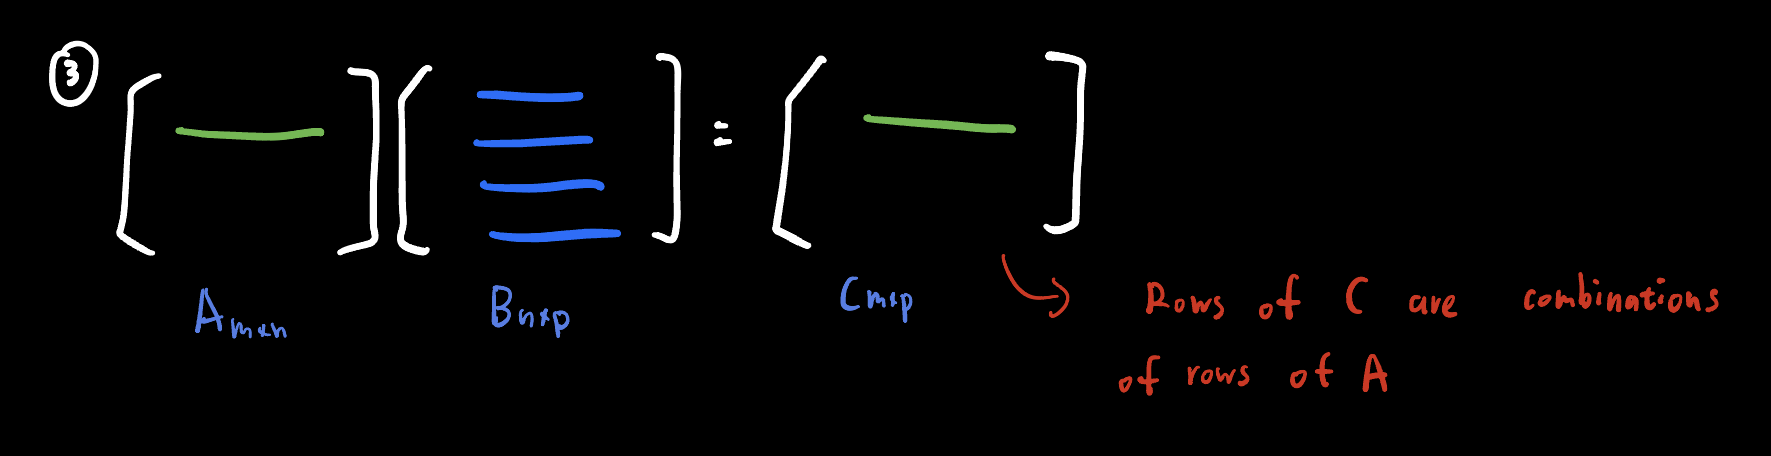 ③
=
A m×n
B n×p
C m×p
Rows of C are combinations
of rows of A